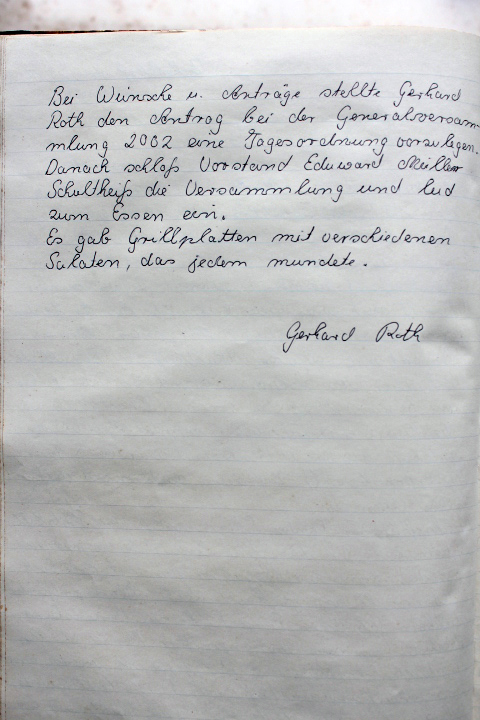 Bei Wünsche u. Anträge stellte Gerhard
Roth den Antrag bei der Generalversam-
mlung 2002 eine Tagesordnung vorzulegen.
Danach schloß Vorstand Eduward Müller
Schultheiß die Versammlung und lud
zum Essen ein.
Es gab Grillplatten mit verschiedenen
Salaten, das jedem mundete.
Gerhard Roth